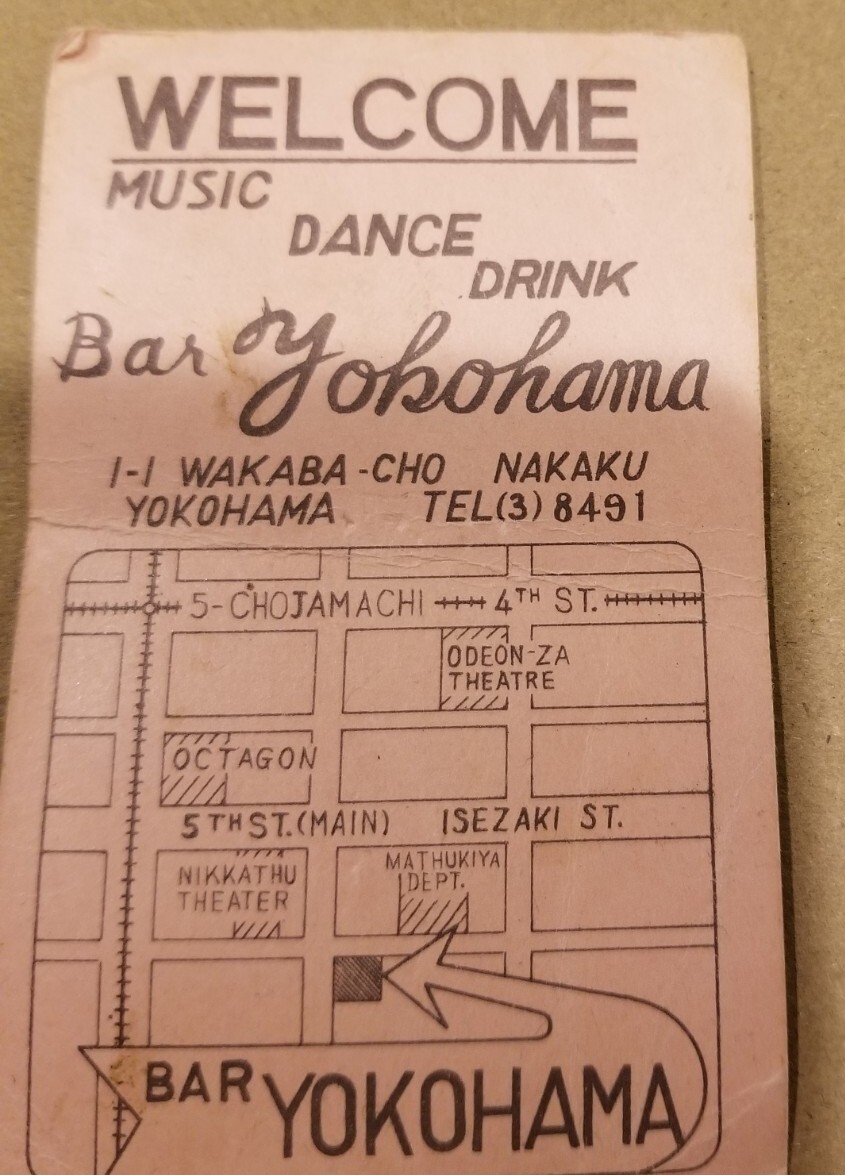 WELCOME
MUSIC
DANCE
DRINK
Bar Yokohama
1-1 WAKABA-CHO NAKAKU
YOKOHAMA TEL(3)8491
5-CHOJAMACHI 4TH ST.
ODEON-ZA
THEATRE
OCTAGON
5TH ST.(MAIN) ISEZAKI ST.
NIKKATHU
THEATER
MATHUKIYA
DEPT.
BAR YOKOHAMA